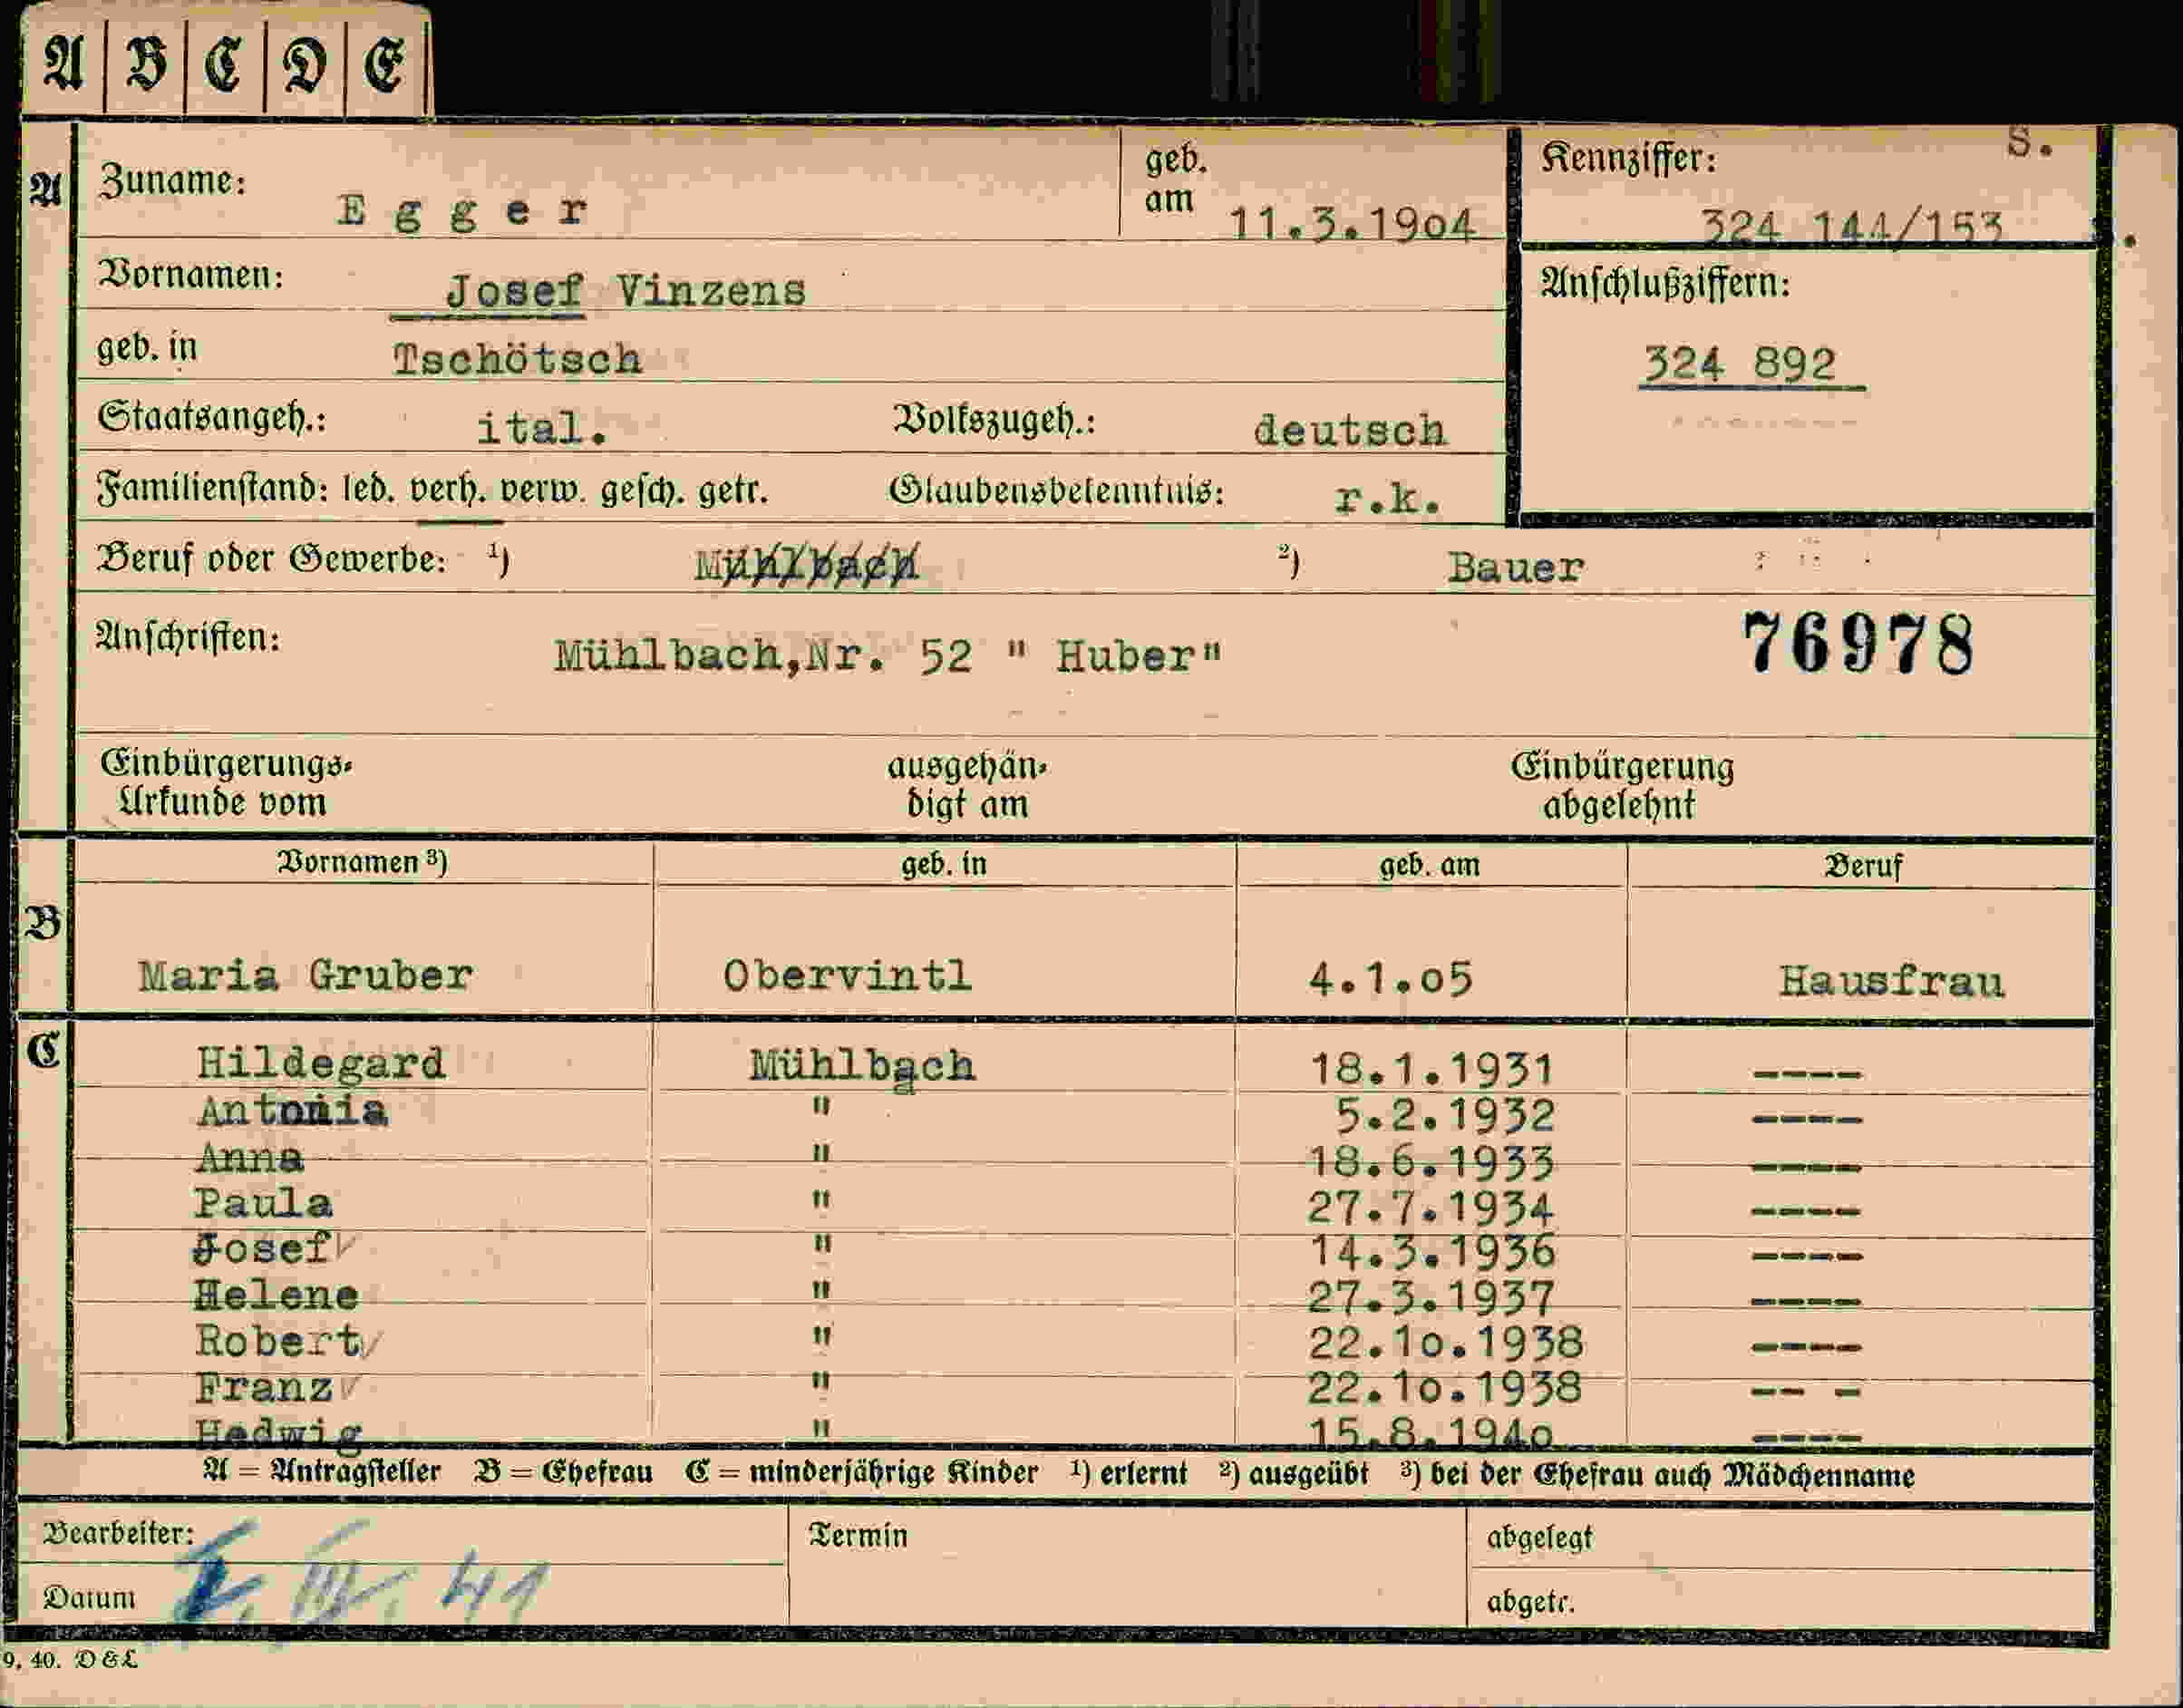 A B C D E
A Zuname: Egger geb. am 11.3.19o4 Kennziffer: S.
324 144/153
Vornamen: Josef Vinzens Anschlußziffern:
geb. in Tschötsch 324 892
Staatsangeh.: ital. Volkszugeh.: deutsch
Familienstand: led. verh. verw. gesch. getr. Glaubensbekenntnis: r.k.
Beruf oder Gewerbe: ¹) Mühlbach ²) Bauer
Anschriften: Mühlbach,Nr. 52 " Huber" 76978
Einbürgerungs- ausgehän- Einbürgerung
Urkunde vom digt am abgelehnt
Vornamen ³) geb. in geb. am Beruf
B Maria Gruber Obervintl 4.1.o5 Hausfrau
C Hildegard Mühlbach 18.1.1931 ----
Antonia " 5.2.1932 ----
Anna " 18.6.1933 ----
Paula " 27.7.1934 ----
Josef " 14.3.1936 ----
Helene " 27.3.1937 ----
Robert " 22.1o.1938 ----
Franz " 22.1o.1938 -- -
Hedwig " 15.8.194o ----
A = Antragsteller B = Ehefrau C = minderjährige Kinder ¹) erlernt ²) ausgeübt ³) bei der Ehefrau auch Mädchenname
Bearbeiter: Termin abgelegt
Datum 41 abgetr.
9. 40. D & L